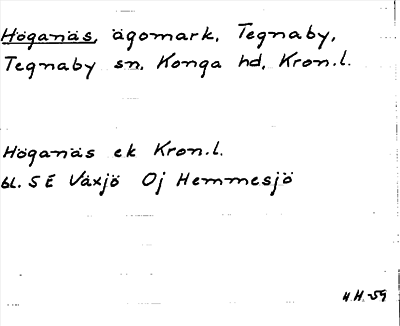 Höganäs, ägomark, Tegnaby,
Tegnaby sn, Konga hd, Kron.l.
Höganäs ek Kron.l.
bl. 5 E Växjö Oj Hemmesjö
H.H.-59